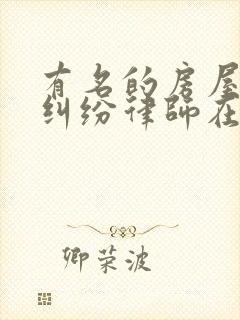 有名的房屋
纠纷律师在
卿荣波